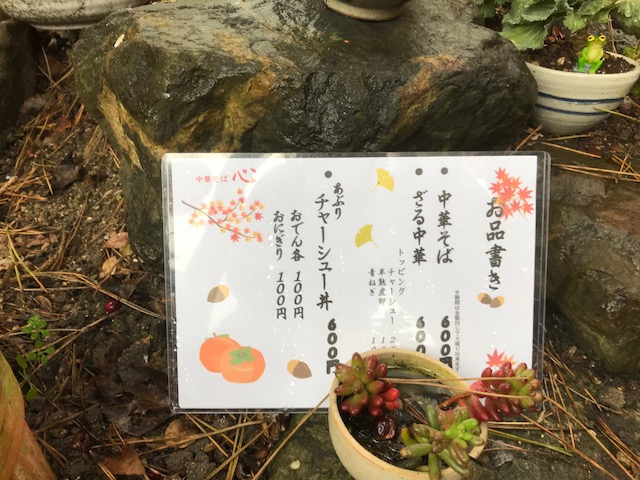 お品書き
中華そば 600円
ざる中華 600
トッピング
チャーシュー
半熟煮卵
青ねぎ
あぶり
チャーシュー丼 600円
おでん各 100円
おにぎり 100円
中華そば 心